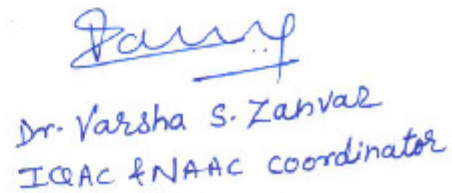 Dr. Varsha S. Zanvar
IQAC & NAAC coordinator